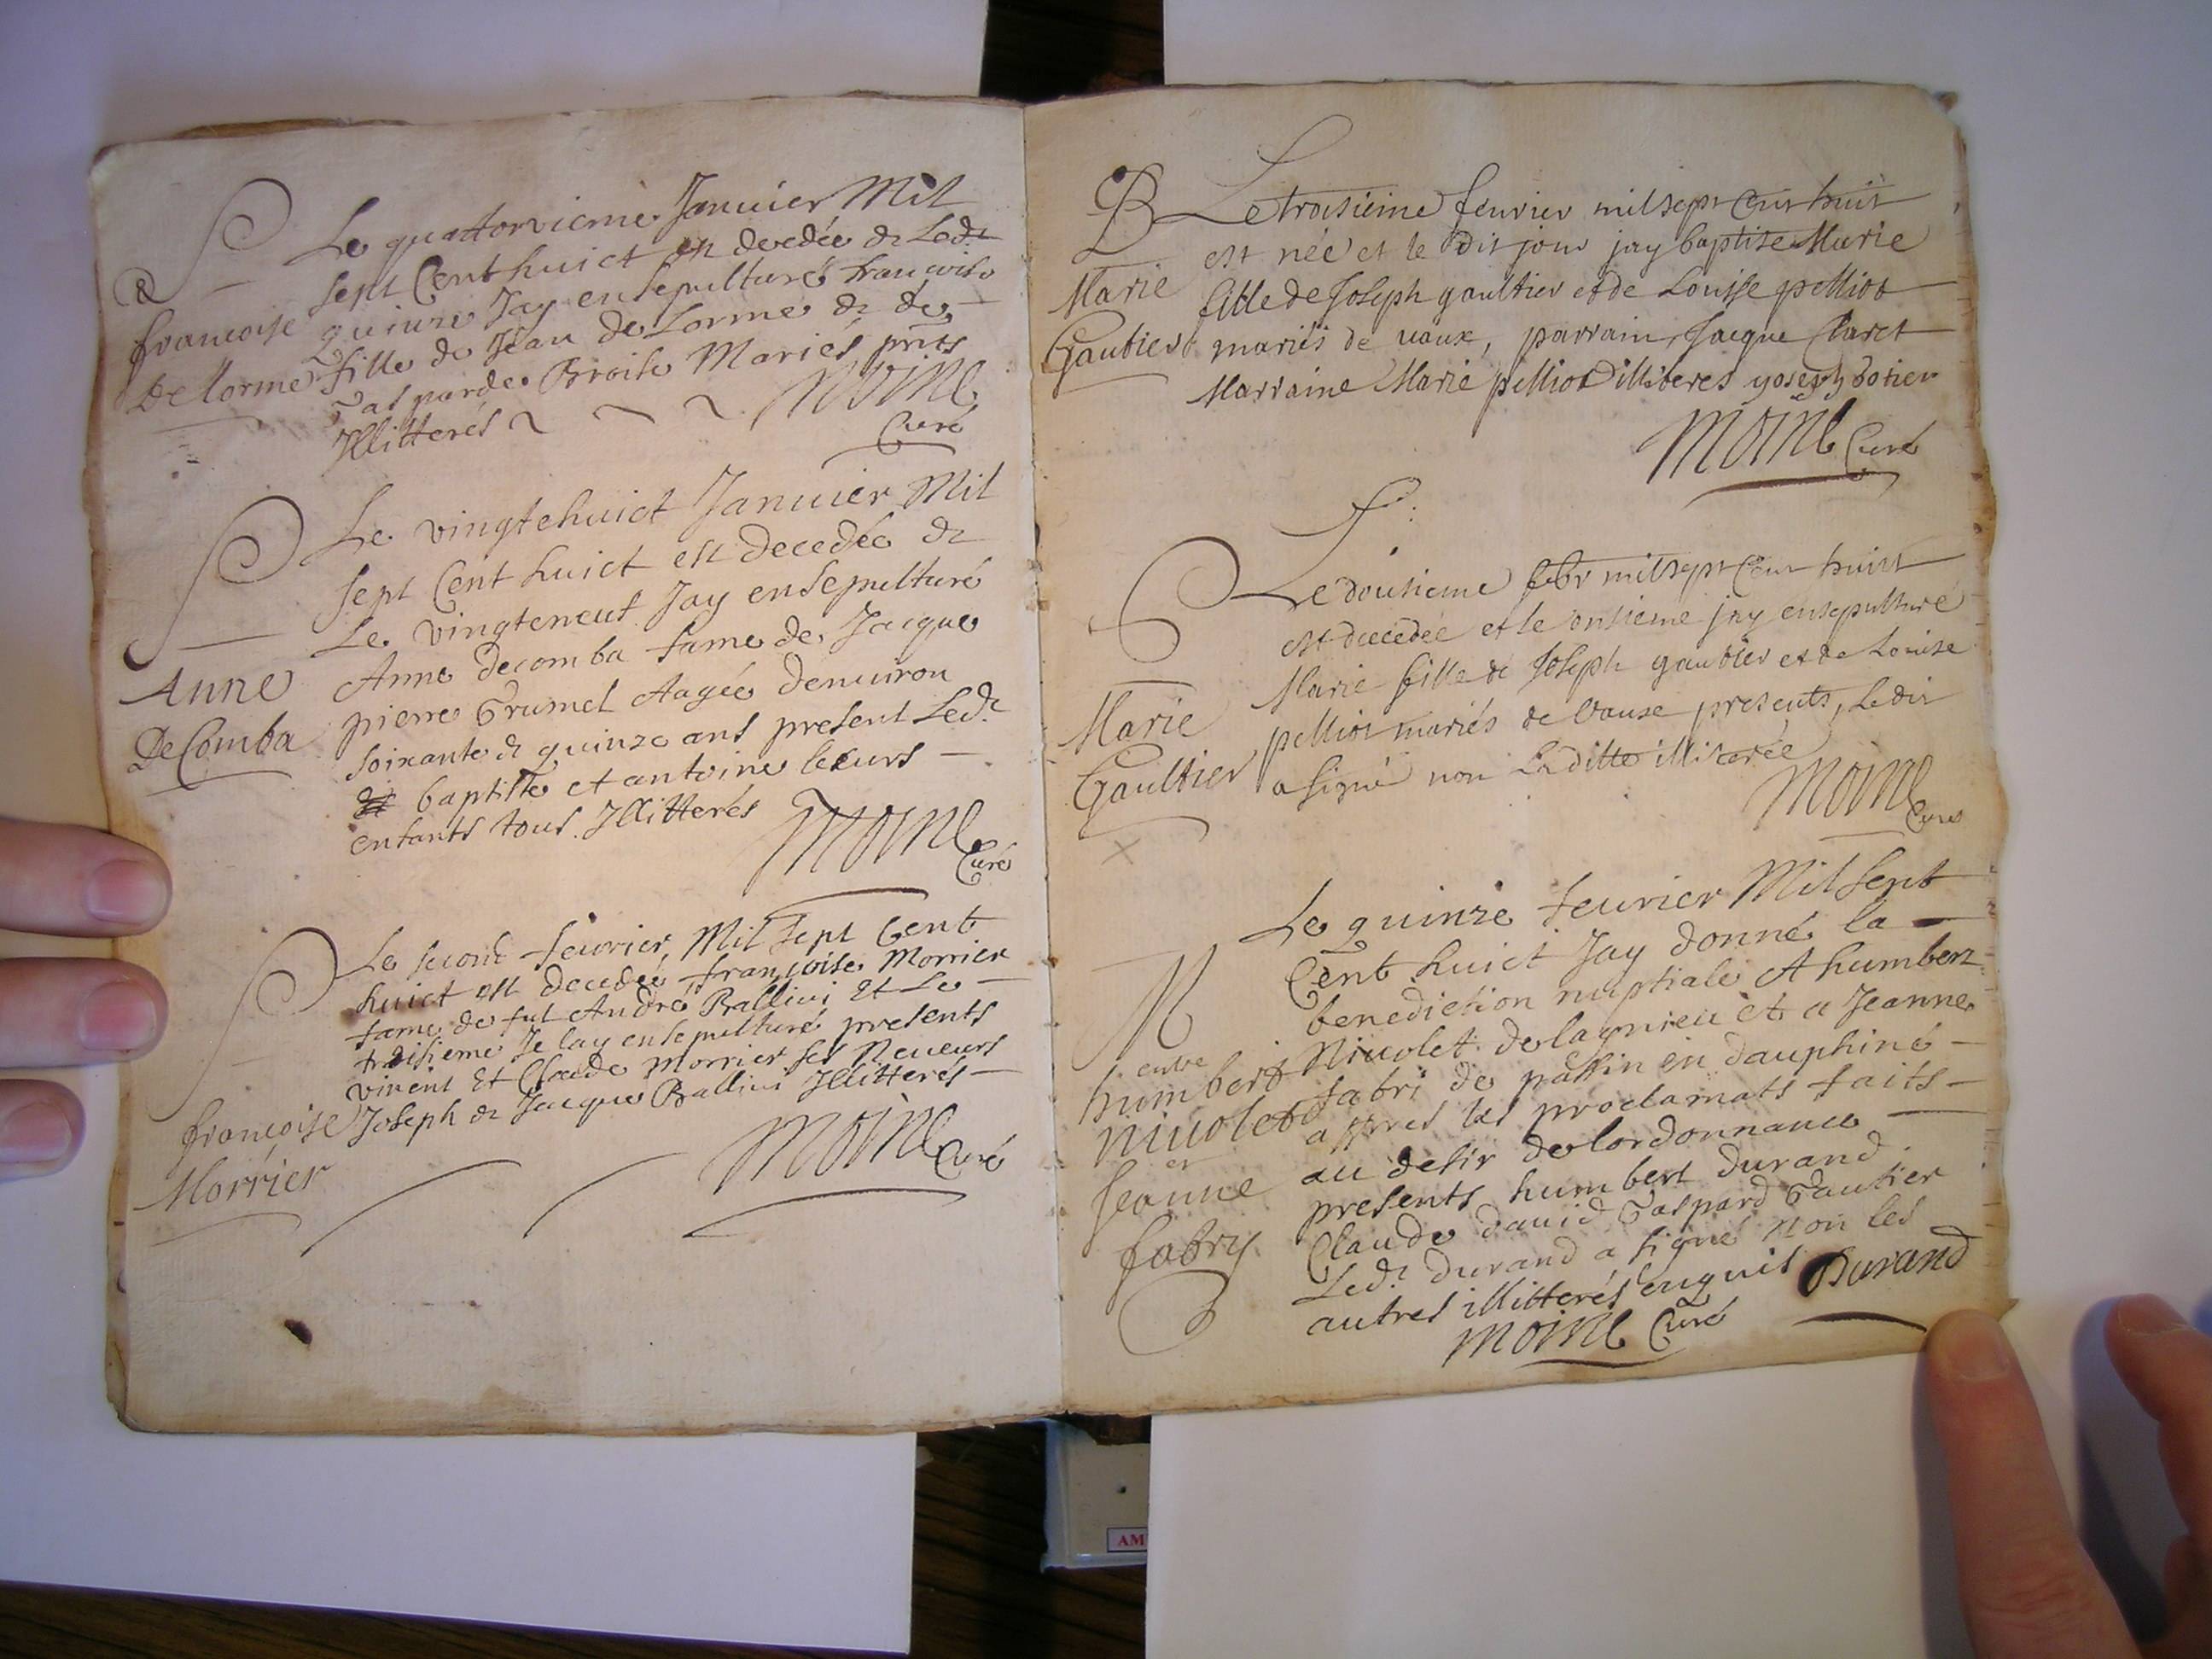 S
Françoise
De lorme
Le quattorvieme Januier Mil
sept Cent huict est decedée & Led.t
quinze Jay ensepulturé francoise
fille de Jean de Lorme & de
Gasparde Broise Mariés, pnts
Jllitterés
Moine
Curé
S
Anne
De Comba
Le vingtehuict Januier Mil
sept Cent huict est decedée &
Le vingteneuf Jay ensepulturé
Anne decomba fame de Jacque
pierre Grumel Aagée denuiron
soixante & quinze ans present Led.t
baptiste et antoine leeurs
enfants tous Jllitterés
Moine
Curé
S
françoise
Morrier
Le second feurier, Mil sept Cent
huict est decedée françoise Morrier
fame de fut André Ballini Et Le
troisieme Je lay ensepulturé presents
vincent Et Claude morrier ses Neueurs
Joseph & Jacque Ballini Jllitterés
Moine Curé
B
Marie
Gautier
Le troisieme feurier mil sept Cent huit
est néé et le dit jour jay baptise Marie
fille de Joseph gaultier et de Louise pelliot
mariés de vaux, parrain Jacque Claret
Marraine Marie pelliot illiteres yoseph botier
Moine Curé
S
Marie
Gaultier
Le dousieme febr mil sept Cent huict
est decedée et le onsieme jay ensepulturé
Marie fille de Joseph gautier et de Louise
pelliot mariés de Vause presents, Ledit
a signé non Laditte illiterée
Moine
Curé
M
entre
humbert
Nicolet
et
Jeanne
fabry
Le quinze feurier Mil sept
Cent huict Jay donné la
benediction nuptiale A humbert
Nicolet de lagnieu et a Jeanne
fabri de passin en dauphiné
appres les proclamats faits
au desir de lordonnance
presents humbert durand
Claude dauid Gaspard Gautier
Led.t durand a signé non les
autres illitterés enquis Durand
Moine Curé
AM